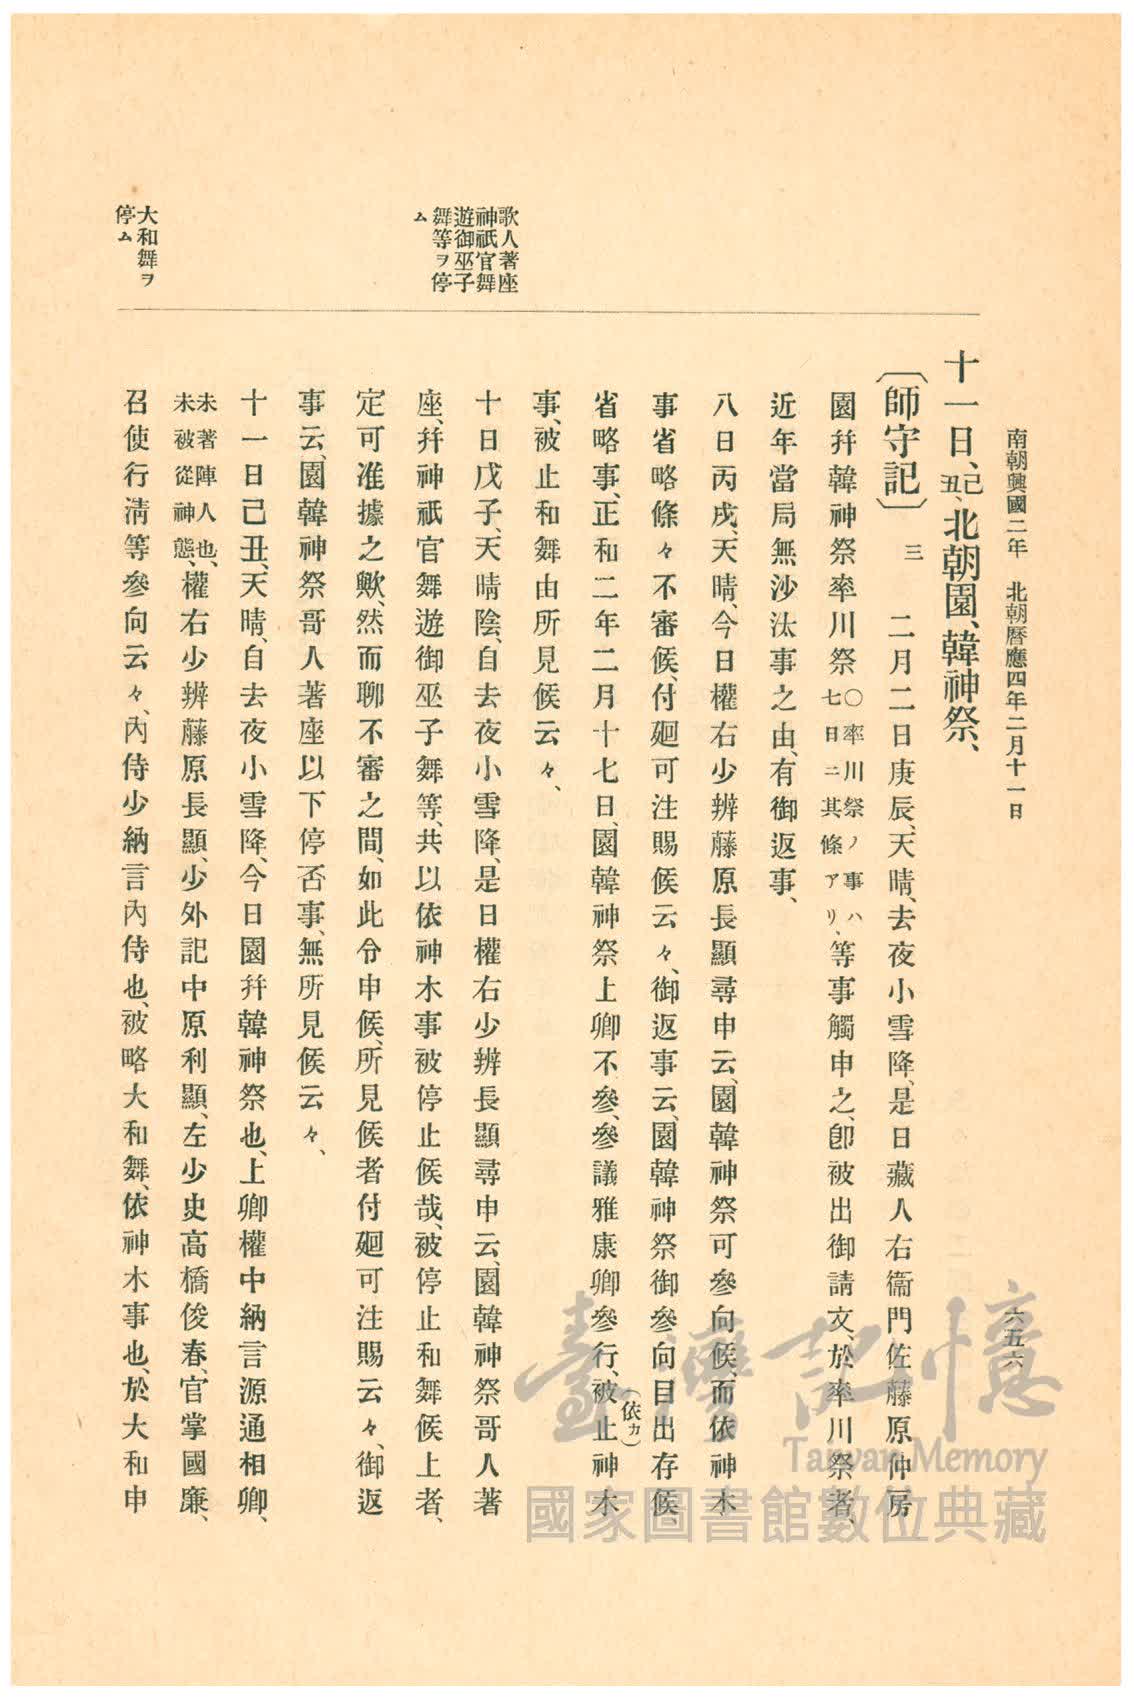 南朝興國二年　北朝曆應四年二月十一日
六五六
十一日、己丑、北朝園、韓神祭、
〔師守記〕三　二月二日庚辰、天晴、去夜小雪降、是日藏人右衞門佐藤原仲房
園幷韓神祭率川祭〇率川祭ノ事ハ七日ニ其條アリ、等事觸申之、卽被出御請文、於率川祭者、
近年當局無沙汰事之由、有御返事、
八日丙戌、天晴、今日權右少辨藤原長顯尋申云、園韓神祭可參向候、而依神木
事省略條々不審候、付廻可注賜候云々、御返事云、園韓神祭御參向目出存候、
省略事、正和二年二月十七日、園韓神祭上卿不參、參議雅康卿參行、被止(依カ)神木
事、被止和舞由所見候云々、
十日戊子、天晴陰、自去夜小雪降、是日權右少辨長顯尋申云、園韓神祭哥人著
座、幷神祇官舞遊御巫子舞等、共以依神木事被停止候哉、被停止和舞候上者、
定可准據之歟、然而聊不審之間、如此令申候、所見候者付廻可注賜云々、御返
事云、園韓神祭哥人著座以下停否事、無所見候云々、
十一日己丑、天晴、自去夜小雪降、今日園幷韓神祭也、上卿權中納言源通相卿、
未著陣人也、未被從神態、權右少辨藤原長顯、少外記中原利顯、左少史高橋俊春、官掌國廉、
召使行淸等參向云々、內侍少納言內侍也、被略大和舞、依神木事也、於大和申
歌人著座
神祇官舞
遊御巫子
舞等ヲ停
ム
大和舞ヲ
停ム
臺灣記憶
Taiwan Memory
國家圖書館數位典藏